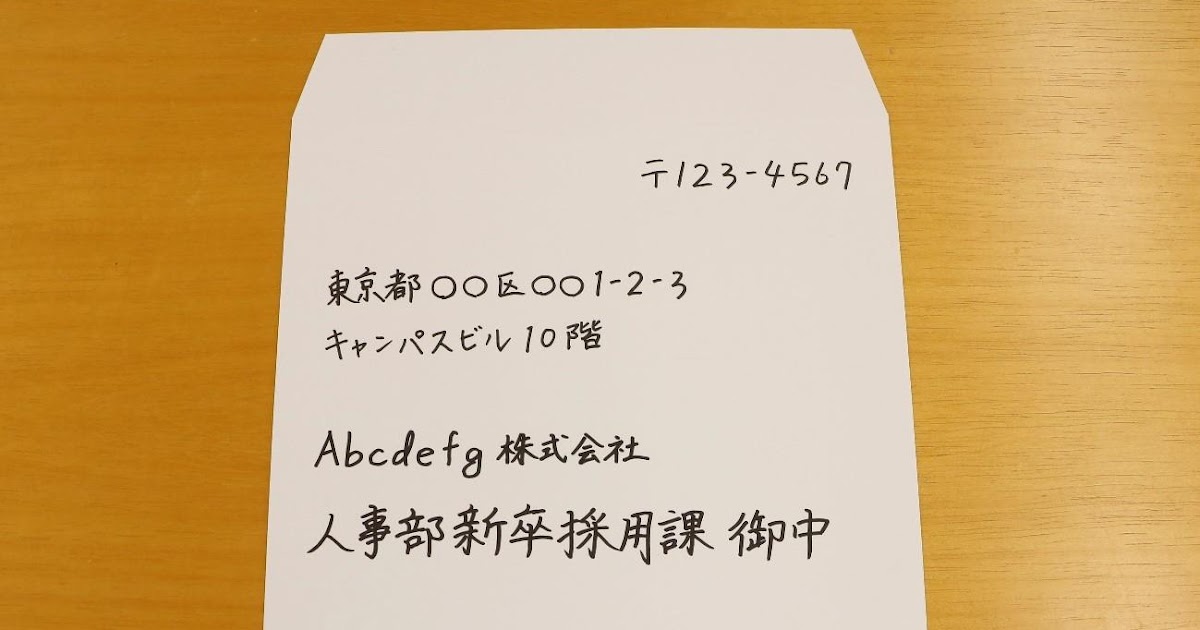 〒123-4567
東京都〇〇区〇〇1-2-3
キャンパスビル10階
Abcdefg 株式会社
人事部新卒採用課 御中